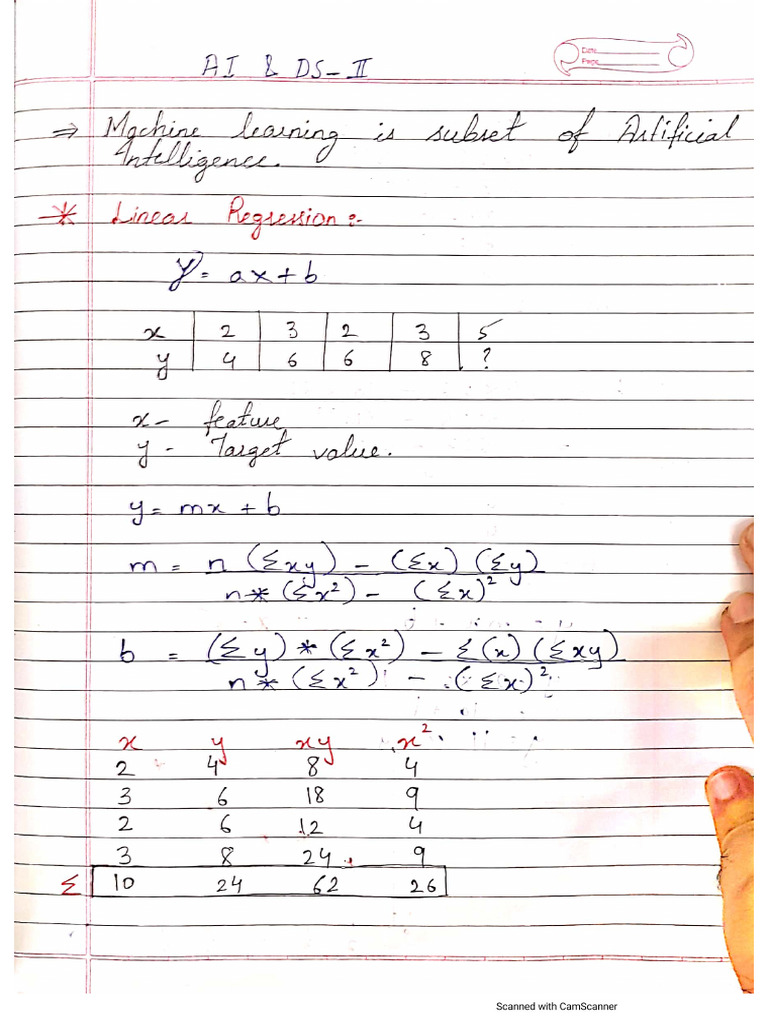 Date
Page
AI & DS-II
⇒ Machine learning is subset of Artificial
Intelligence.
* Linear Regression:-
y = ax + b
x 2 3 2 3 5
y 4 6 6 8 ?
x - feature
y - Target value.
y = mx + b
m = n (Σxy) - (Σx) (Σy)
n * (Σx²) - (Σx)²
b = (Σy) * (Σx²) - Σ(x) (Σxy)
n * (Σx²) - (Σx)²
x y xy x²
2 4 8 4
3 6 18 9
2 6 12 4
3 8 24 9
Σ 10 24 62 26
Scanned with CamScanner